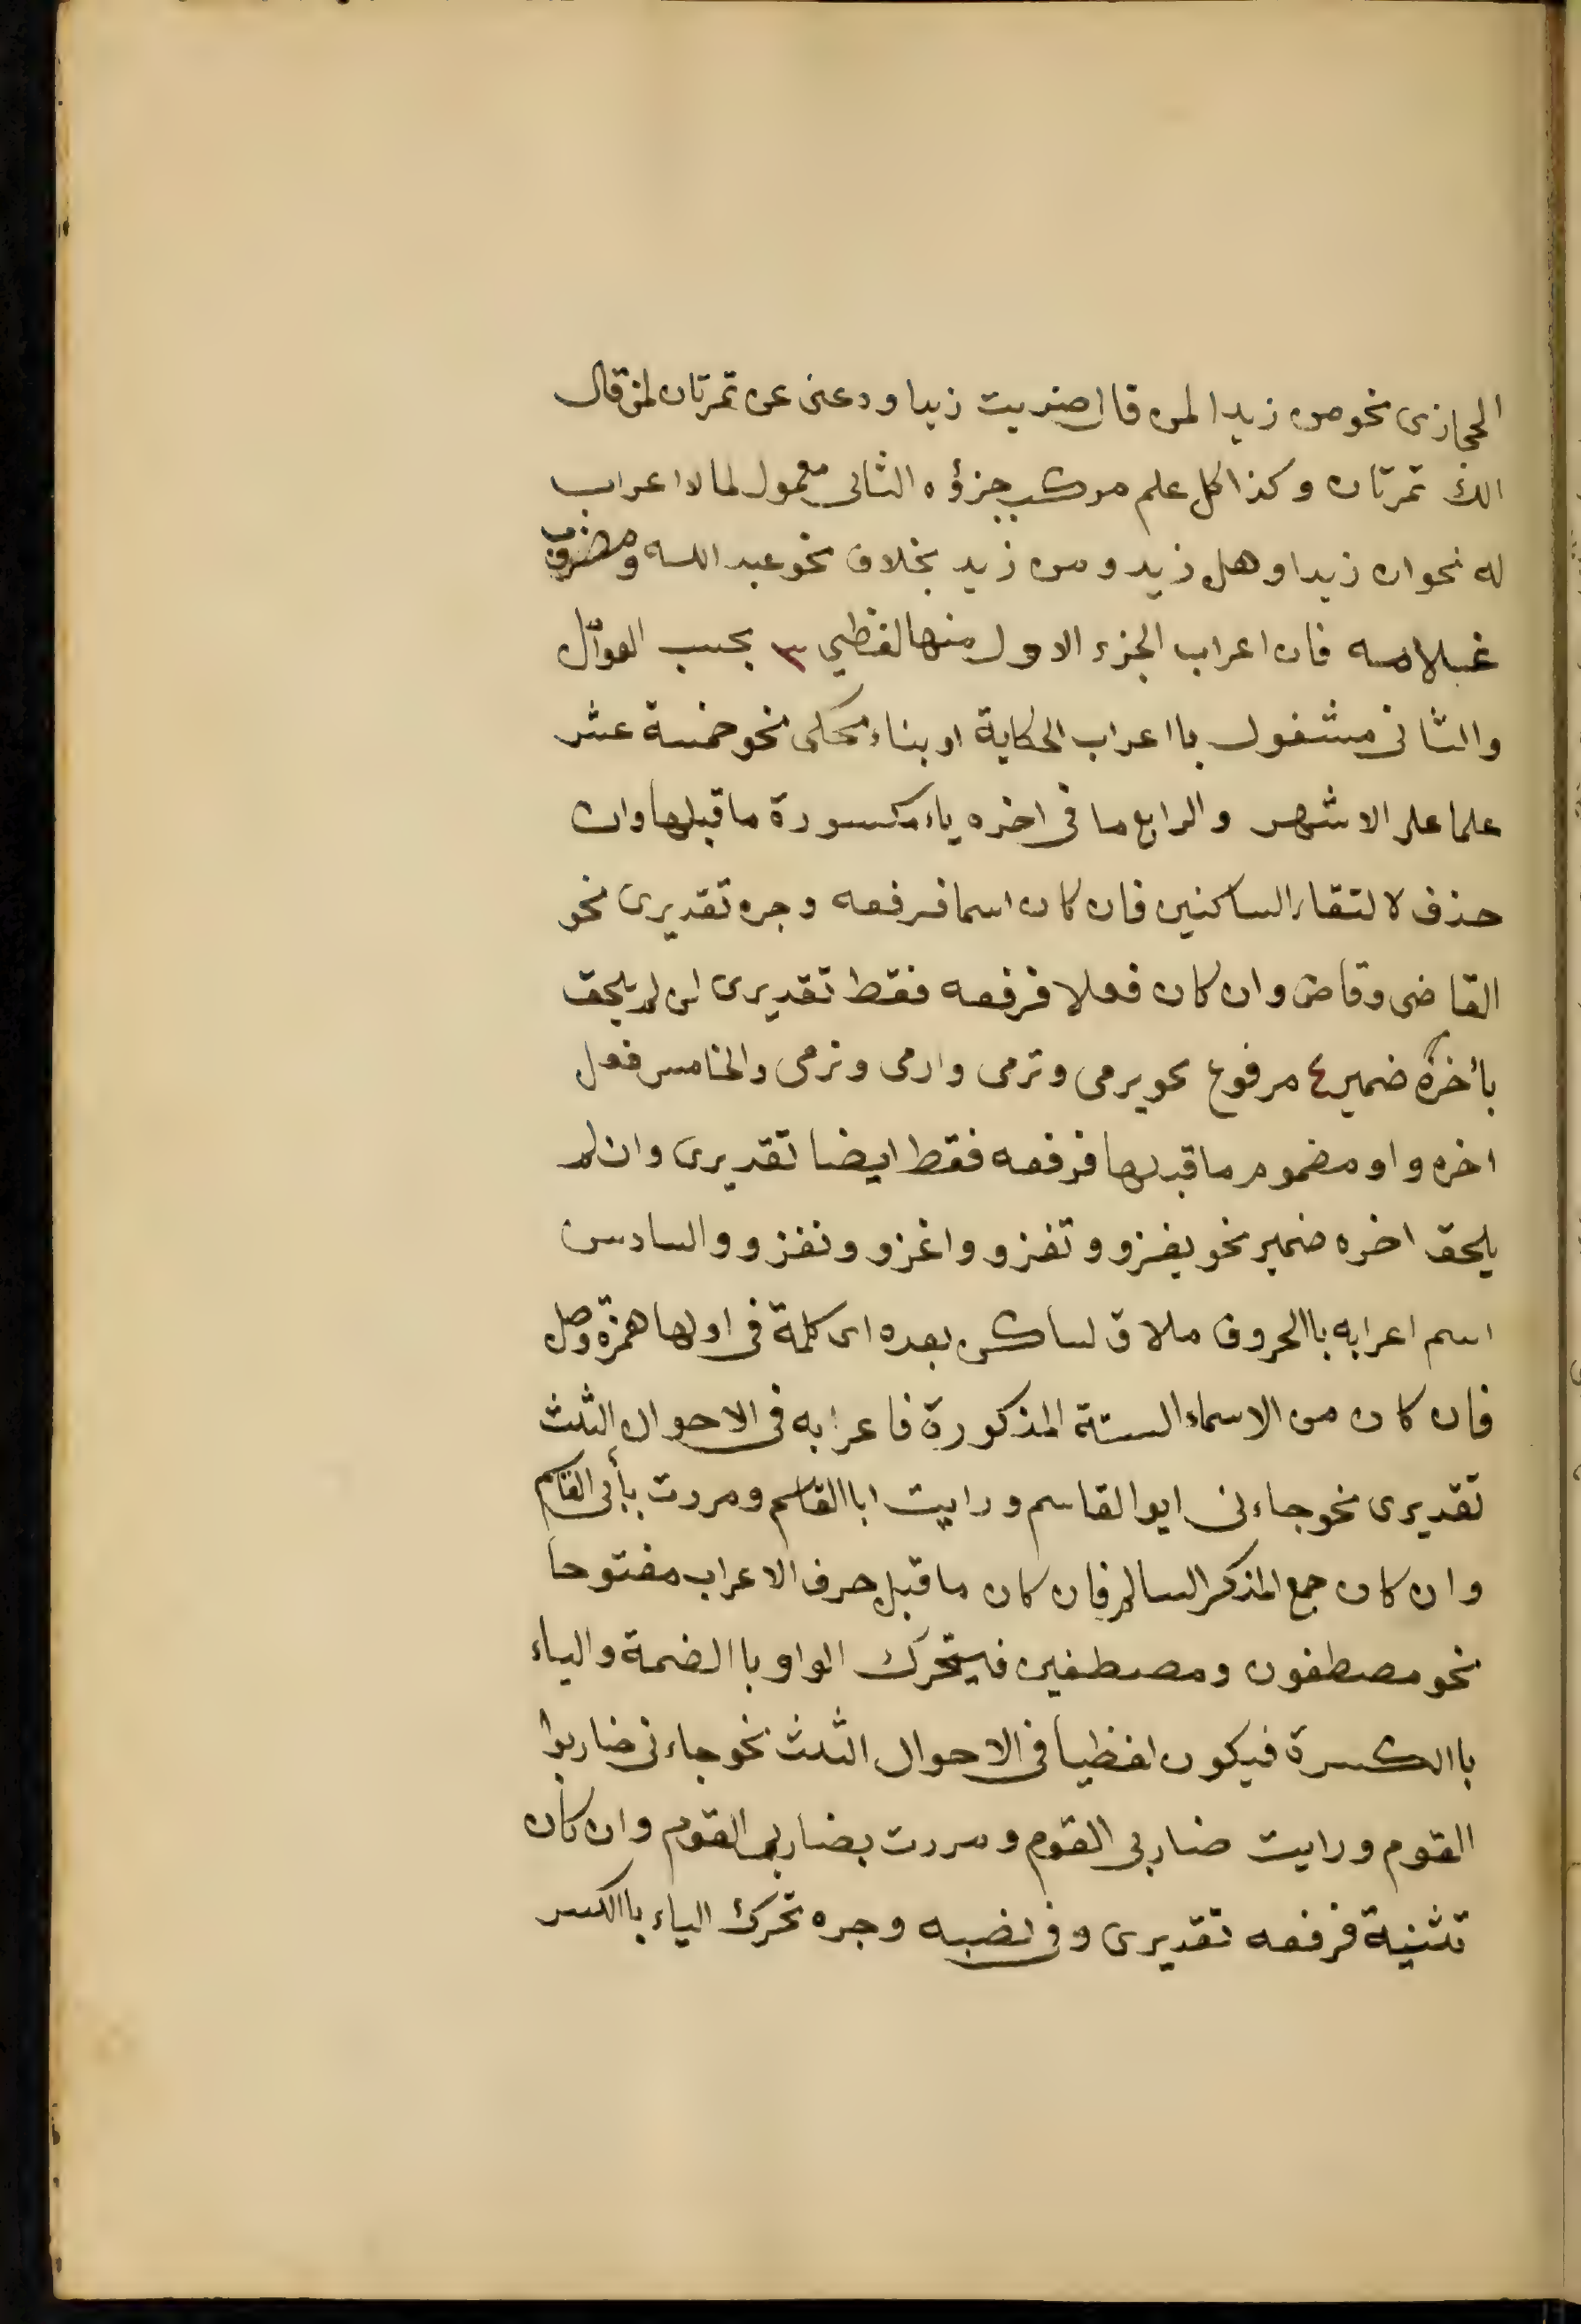 الحجازى نحو من زيدا لمن قال ضربت زيدا ودعنى عن تمرتان لمن قال
الك تمرتان وكذا كل علم مركب جزؤه الثانى معمول لما لا اعراب
له نحو ان زيدا وهل زيد ومن زيد بخلاف نحو عبد الله ومضروب
غبلامه فان اعراب الجزء الاول منها لفظي ٣ بحسب العوامل
والثانى مشغول باا عراب الحكاية او بناء محكى نحو خمسة عشر
علما على الاشهر والرابع ما فى اخره ياء مكسورة ما قبلها وان
حذف لالتقاء الساكنين فان كان اسما فرفعه وجره تقديرى نحو
القاضى وقاض وان كان فعلا فرفعه فقط تقديرى ان لم يلحق
بأخره ضمير ٤ مرفوع نحو يرمى وترمى وارمى ونرمى والخامس فعل
اخره واو مضموم ما قبلها فرفعه فقط ايضا تقديرى وان لم
يلحق اخره ضمير نحو يغزو وتغزو واغزو ونغزو والسادس
اسم اعرابه باالحروف ملاق لساكن بعده اى كلمة فى اولها همزة وصل
فان كان من الاسماء الستة المذكورة فاعرابه فى الاحوال الثلث
تقديرى نحو جاءنى ابوا لقاسم ورايت ابا القاسم ومررت بأبى القاسم
وان كان جمع المذكر السالم فان كان ما قبل حرف الاعراب مفتوحا
نحو مصطفون ومصطفين فيتحرك الواو باالضمة والياء
باالكسرة فيكون لفظيا فى الاحوال الثلث نحو جاءنى ضاربوا
القوم ورايت ضاربى القوم ومررت بضاربى القوم وان كان
تثنية فرفعه تقديرى وفى نصبه وجره تحرك الياء باالكسر